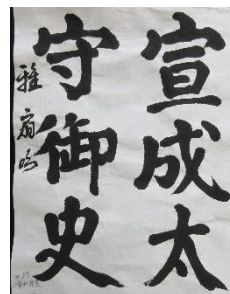 宣成太
守御史
雅扇鳴